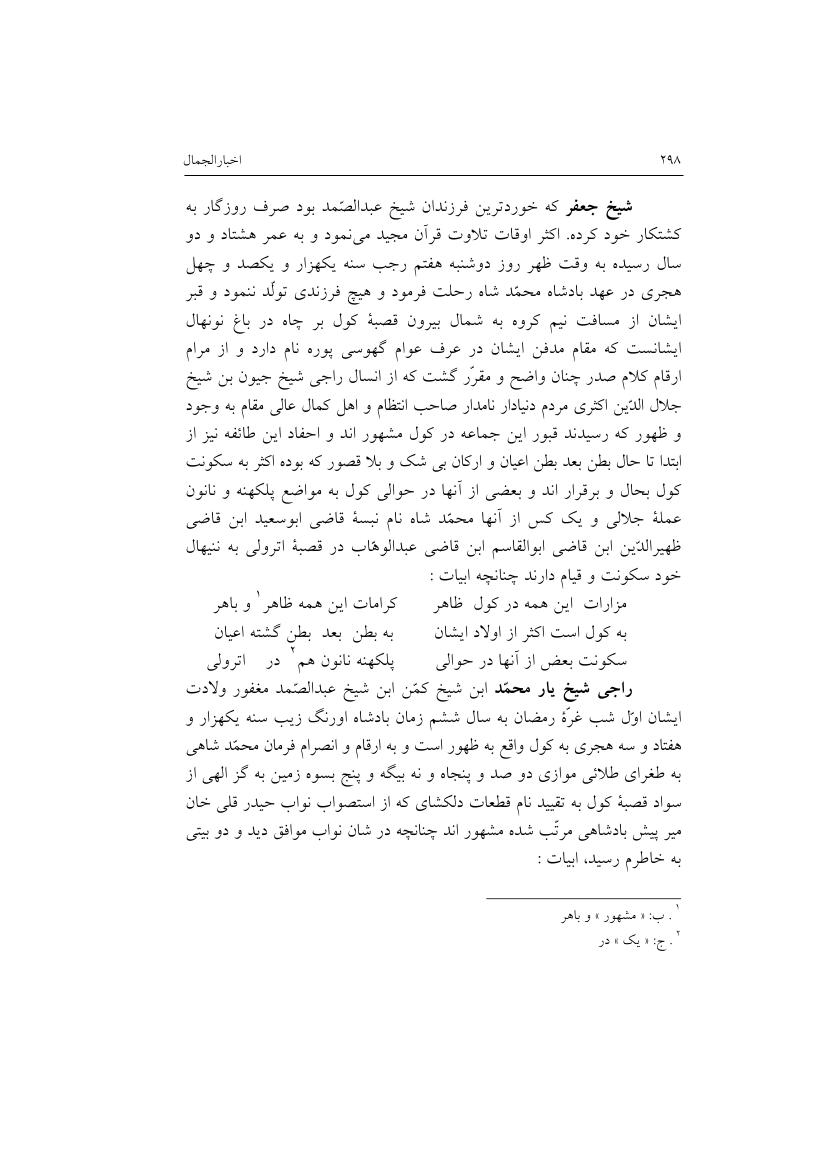 ۲۹۸ اخبارالجمال
شیخ جعفر که خوردترین فرزندان شیخ عبدالصّمد بود صرف روزگار به
کشتکار خود کرده. اکثر اوقات تلاوت قرآن مجید می‌نمود و به عمر هشتاد و دو
سال رسیده به وقت ظهر روز دوشنبه هفتم رجب سنه یکهزار و یکصد و چهل
هجری در عهد بادشاه محمّد شاه رحلت فرمود و هیچ فرزندی تولّد ننمود و قبر
ایشان از مسافت نیم کروه به شمال بیرون قصبهٔ کول بر چاه در باغ نونهال
ایشانست که مقام مدفن ایشان در عرف عوام گهوسی پوره نام دارد و از مرام
ارقام کلام صدر چنان واضح و مقرّر گشت که از انسال راجی شیخ جیون بن شیخ
جلال الدّین اکثری مردم دنیادار نامدار صاحب انتظام و اهل کمال عالی مقام به وجود
و ظهور که رسیدند قبور این جماعه در کول مشهور اند و احفاد این طائفه نیز از
ابتدا تا حال بطن بعد بطن اعیان و ارکان بی شک و بلا قصور که بوده اکثر به سکونت
کول بحال و برقرار اند و بعضی از آنها در حوالی کول به مواضع پلکهنه و نانون
عملهٔ جلالی و یک کس از آنها محمّد شاه نام نبسهٔ قاضی ابوسعید ابن قاضی
ظهیرالدّین ابن قاضی ابوالقاسم ابن قاضی عبدالوهّاب در قصبهٔ اترولی به ننیهال
خود سکونت و قیام دارند چنانچه ابیات :
مزارات این همه در کول ظاهر کرامات این همه ظاهر۱ و باهر
به کول است اکثر از اولاد ایشان به بطن بعد بطن گشته اعیان
سکونت بعض از آنها در حوالی پلکهنه نانون هم۲ در اترولی
راجی شیخ یار محمّد ابن شیخ کمّن ابن شیخ عبدالصّمد مغفور ولادت
ایشان اوّل شب غرّهٔ رمضان به سال ششم زمان بادشاه اورنگ زیب سنه یکهزار و
هفتاد و سه هجری به کول واقع به ظهور است و به ارقام و انصرام فرمان محمّد شاهی
به طغرای طلائی موازی دو صد و پنجاه و نه بیگه و پنج بسوه زمین به گز الهی از
سواد قصبهٔ کول به تقیید نام قطعات دلکشای که از استصواب نواب حیدر قلی خان
میر پیش بادشاهی مرتّب شده مشهور اند چنانچه در شان نواب موافق دید و دو بیتی
به خاطرم رسید، ابیات :
۱ . ب: « مشهور » و باهر
۲ . ج: « یک » در